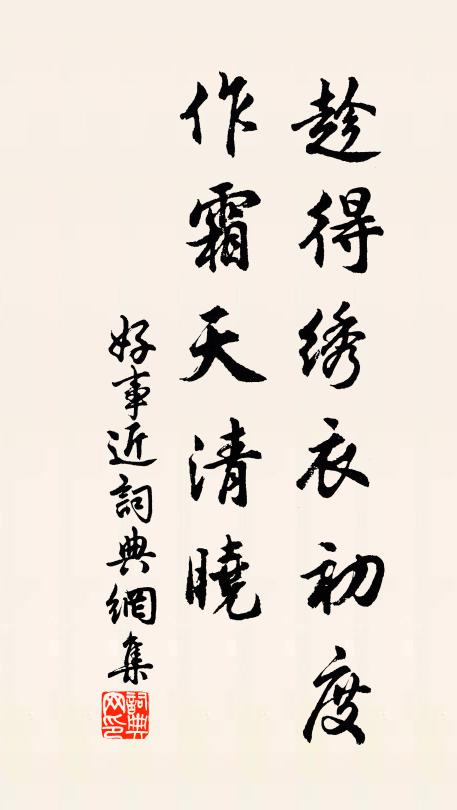 趁得绣衣初度
作霜天清曉
好事近詞典網集
詞典網印